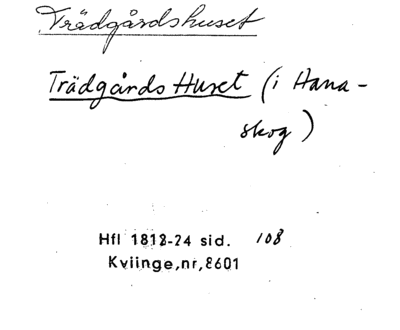 Trädgårdshuset
Trädgårds Huset (i Hana-
skog)
Hfl 1818-24 sid. 108
Kviinge,nr,8601